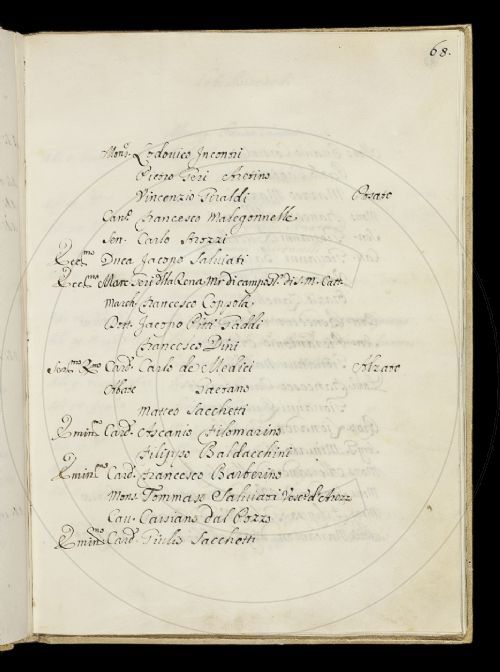 68.
Mons.r Lodovico Incontri
Pietro Neri Aretino
Vincenzio Piraldi Posate
Can.co Francesco Malegonnelle
Sen. Carlo Strozzi
Ecc.mo Duca Jacopo Salviati
Ecc.mo Marc. della Rena di campo di S. M. Catt.
March. Francesco Coppola
Dott. Jacopo Pitti Gaddi
Francesco Dini
Ser.mo R.mo Card. Carlo de Medici Alzate
Abate Gaetano
Matteo Sacchetti
Emin.mo Card. Ascanio Filomarino
Filippo Baldacchini
Emin.mo Card. Francesco Barberino
Mons. Tommaso Salviati
Cau. Cassiano dal Pozzo
Emin.mo Card. Giulio Sacchetti